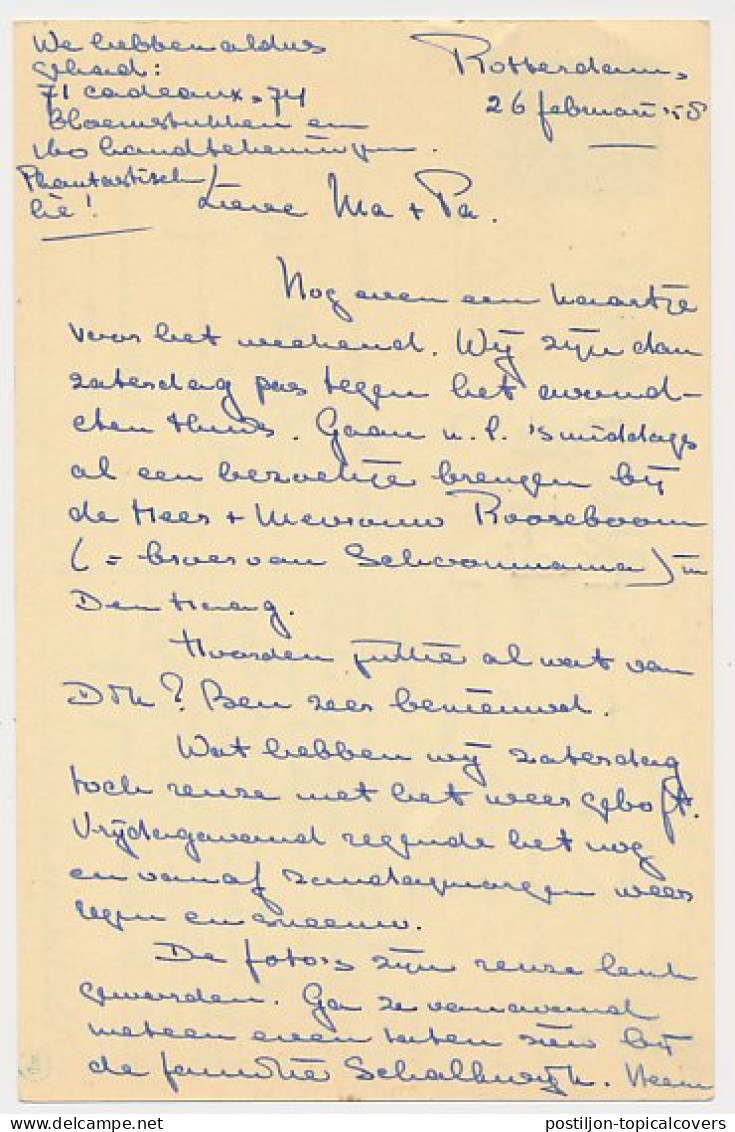 We hebben aldus
gehad:
71 cadeaux, 74
Bloemstukken en
160 handtekeningen.
Phantastisch
hè!
Rotterdam,
26 februari '58
Lieve Ma + Pa.
Nog even een kaartje
voor het weekend. Wij zijn dan
zaterdag pas tegen het avond-
eten thuis. Gaan n.l. 's middags
al een bezoekje brengen bij
de Heer + Mevrouw Rooseboom
(= broer van Schoonmama) in
Den Haag.
Hoorden jullie al wat van
Dök? Ben zeer benieuwd.
Wat hebben wij zaterdag
toch reuze met het weer geboft.
Vrijdagavond regende het nog
en vanaf zondagmorgen weer
regen en sneeuw.
De foto's zijn reuze leuk
geworden. Ga ze vanavond
meteen even laten zien bij
de familie Schalkwijk. Neem
postiljon-topicalcovers